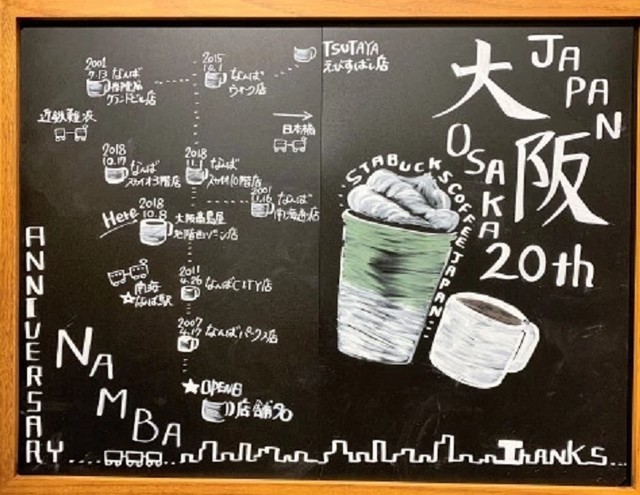 TSUTAYA
えびすばし店
2001
7.13
なんば
グランドビル店
2015
10.1
なんば
ウォーク店
近鉄難波
日本橋
2018
10.17
なんば
スカイオ3階店
2018
11.1
なんば
スカイオ10階店
2001
11.16
なんば
南海通り店
Here
2018
10.8
大阪髙島屋
地階西ゾーン店
南海
なんば駅
2011
4.26
なんばCITY店
2007
4.17
なんばパークス店
OPENED
店舗90
ANNIVERSARY
NAMBA
JAPAN
大阪
OSAKA
20th
STABUCKS COFFEE JAPAN
THANKS...